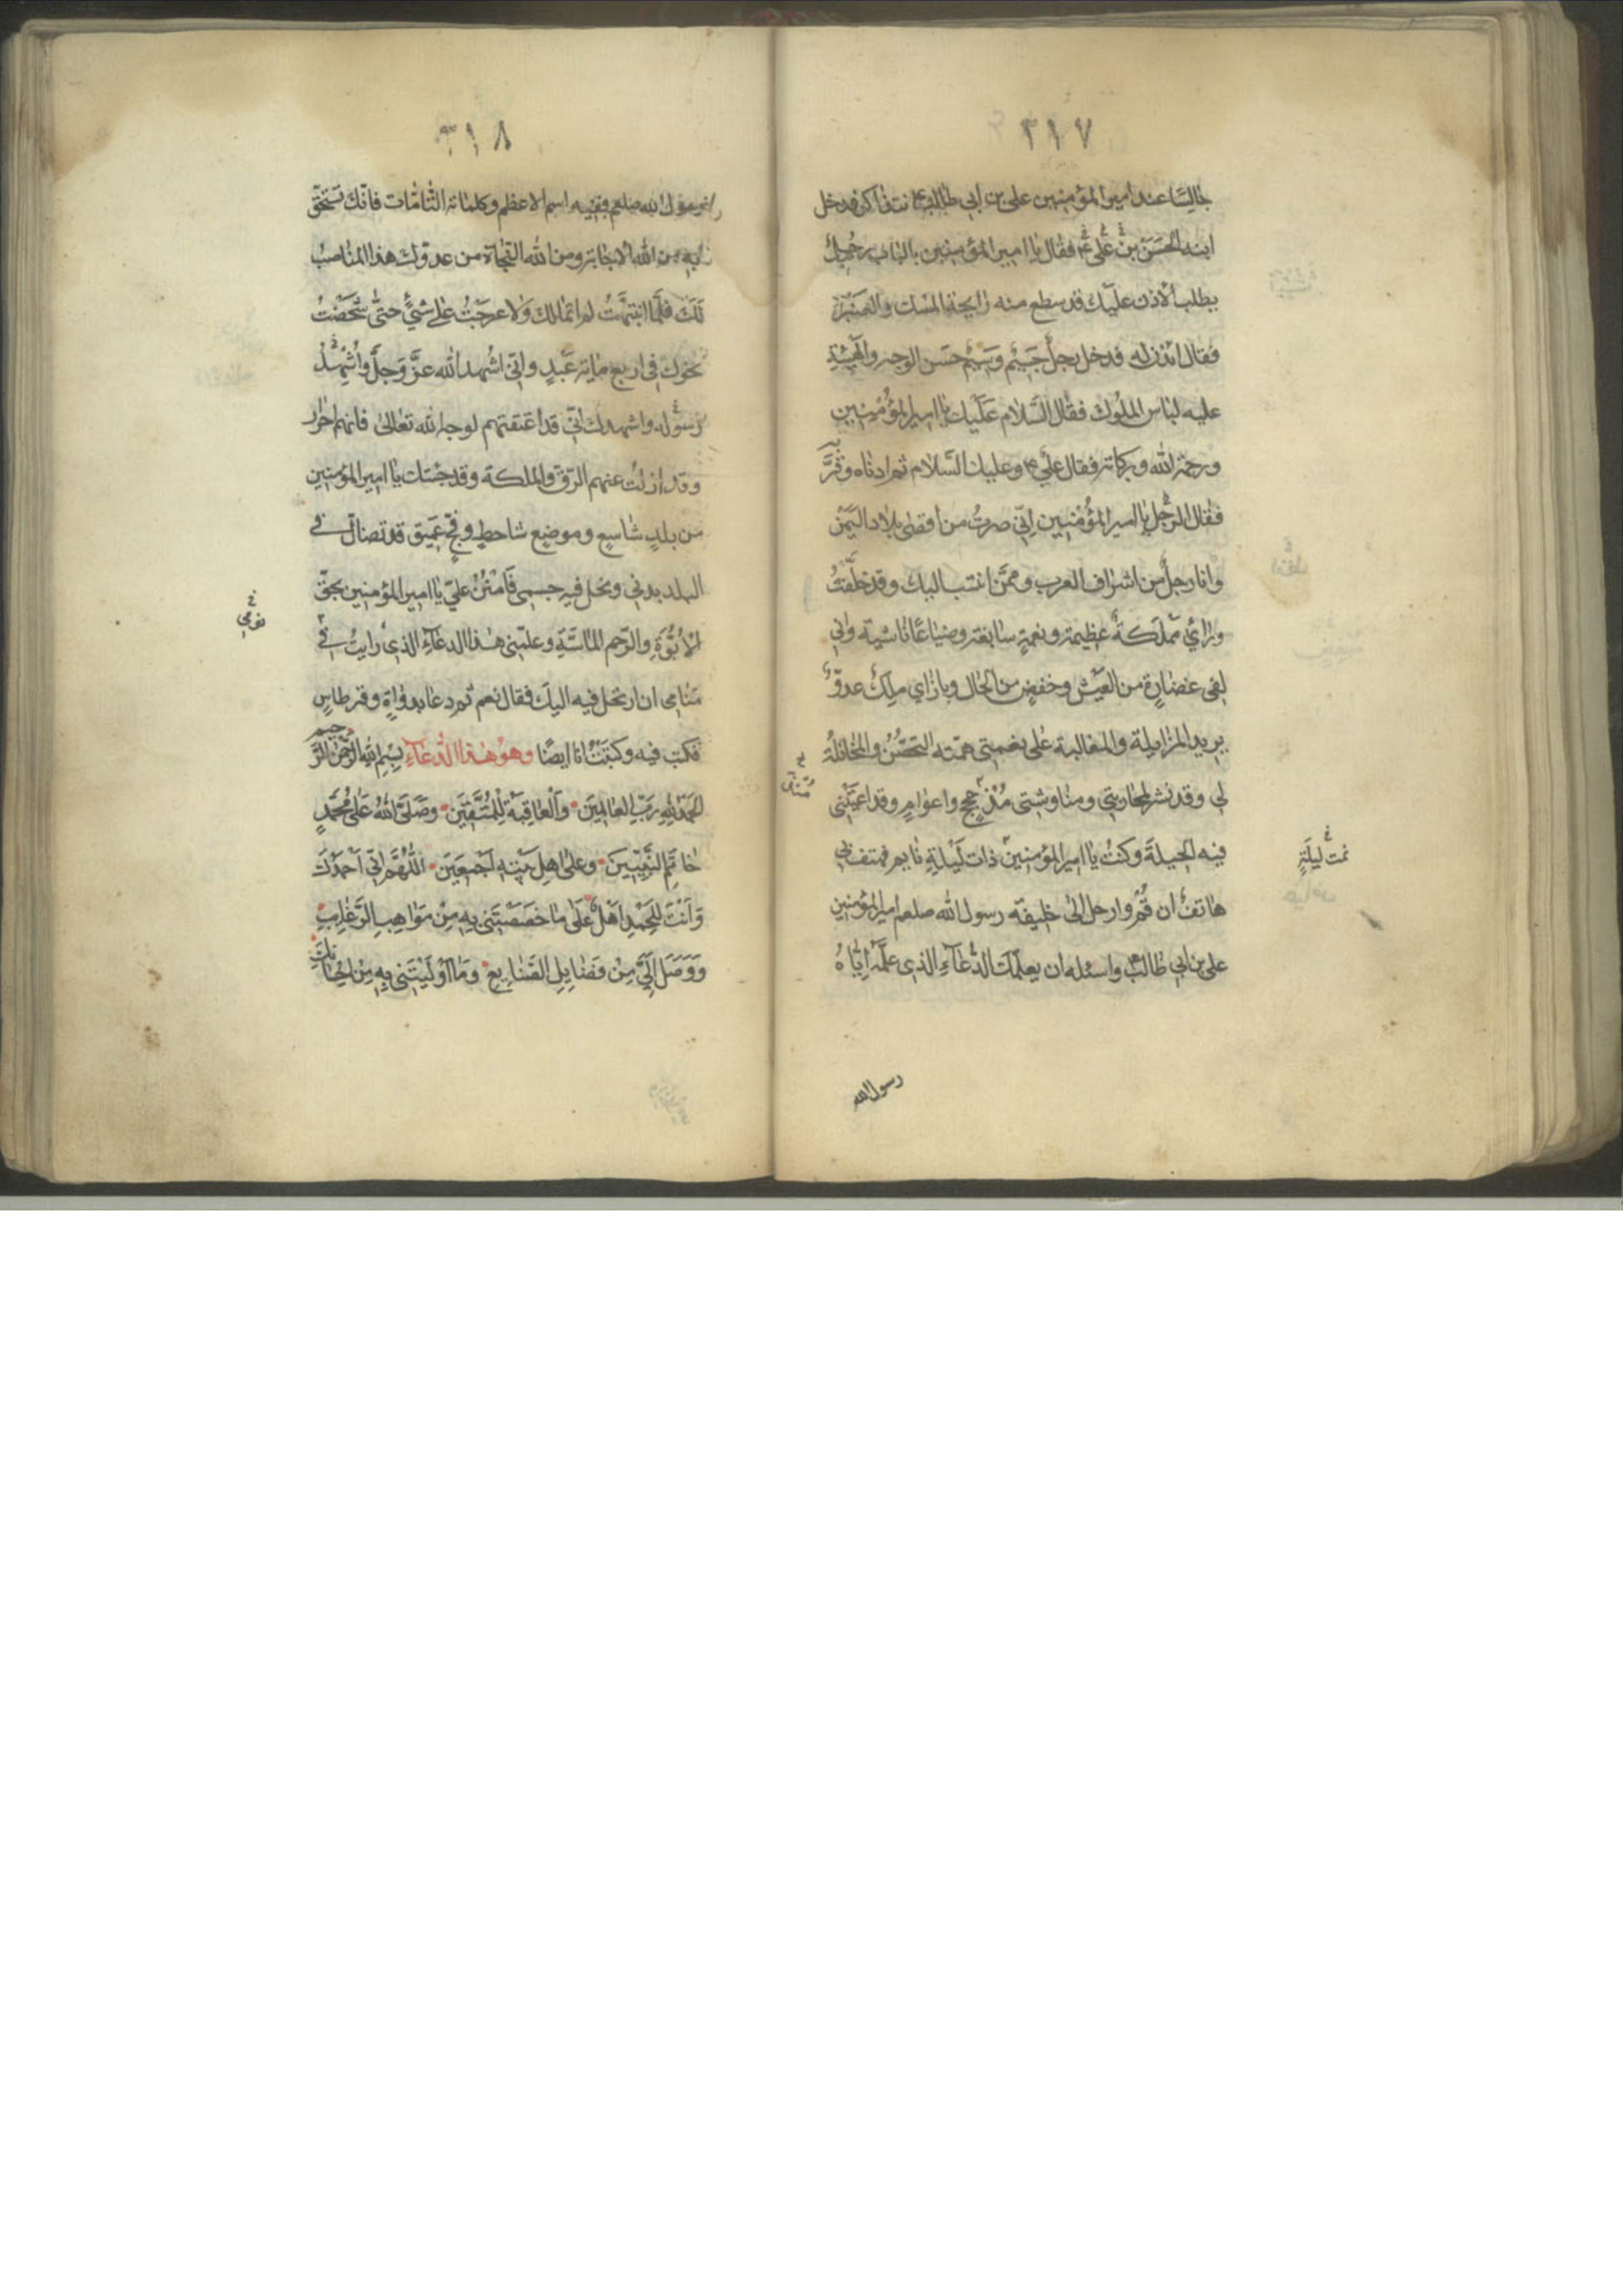 ٣١٧
جالسًا عند امير المؤمنين علي بن ابي طالب ع نتذاكر فدخل
ابنه الحسن بن علي ع فقال يا امير المؤمنين بالباب رجل
يطلب الاذن عليك قد سطع منه رايحة المسك والعنبر
فقال ائذن له فدخل رجل جسيم وسيم حسن الوجه والهيئة
عليه لباس الملوك فقال السلام عليك يا امير المؤمنين
ورحمة الله وبركاته فقال علي ع وعليك السلام ثم ادناه وقربه
فقال الرجل يا امير المؤمنين اني صرت من اقصى بلاد اليمن
وانا رجل من اشراف العرب وممن انتسب اليك وقد خلفت
ورائي مملكة عظيمة ونعمة سابغة وضياعًا ناشية واني
لفي غضارة من العيش وخفض من الحال وبازاي ملك عدو
يريد المزايلة والمغالبة على نعمتي همته التحصن والمخاتلة
لي وقد نشر لمحاربتي ومناوشتي مذ حجج واعوام وقد اعيتني
فيه الحيلة وكنت يا امير المؤمنين ذات ليلة نايم فهتف بي
هاتف ان قم وارحل الى خليفة رسول الله صلعم امير المؤمنين
علي بن ابي طالب ع واسئله ان يعلمك الدعاء الذي علمه اياه
نمت ليلة
رسول الله
٣١٨
رسول الله صلعم ففيه اسم الاعظم وكلماته التامات فانك تستحق
به من الله الاجابة ومن الله النجاة من عدوك هذا المناصب
لك فلما انتبهت لم اتمالك ولا عرجت على شيء حتى شخصت
نحوك في اربع مائة عبد واني اشهد الله عز وجل واشهد
رسوله واشهدك اني قد اعتقتهم لوجه الله تعالى فانهم احرار
وقد ازلت عنهم الرق والملكة وقد جئتك يا امير المؤمنين
من بلد شاسع وموضع شاحط وفج عميق قد تضال في
البلد بدني ونحل فيه جسمي فامنن علي يا امير المؤمنين بحق
الابوة والرحم الماسة وعلمني هذا الدعاء الذي رايت في
منامي ان ارتحل فيه اليك فقال نعم ثم دعا بدواة وقرطاس
فكتب فيه وكتبت انا ايضًا وهو هذا الدعاء بسم الله الرحمن الرحيم
الحمد لله رب العالمين والعاقبة للمتقين وصلى الله على محمد
خاتم النبيين وعلى اهل بيته اجمعين اللهم اني احمدك
وانت للحمد اهل على ما خصصتني به من مواهب الرغايب
ووصل الي من فضايل الصنايع وما اوليتني به من احسانك
نومي